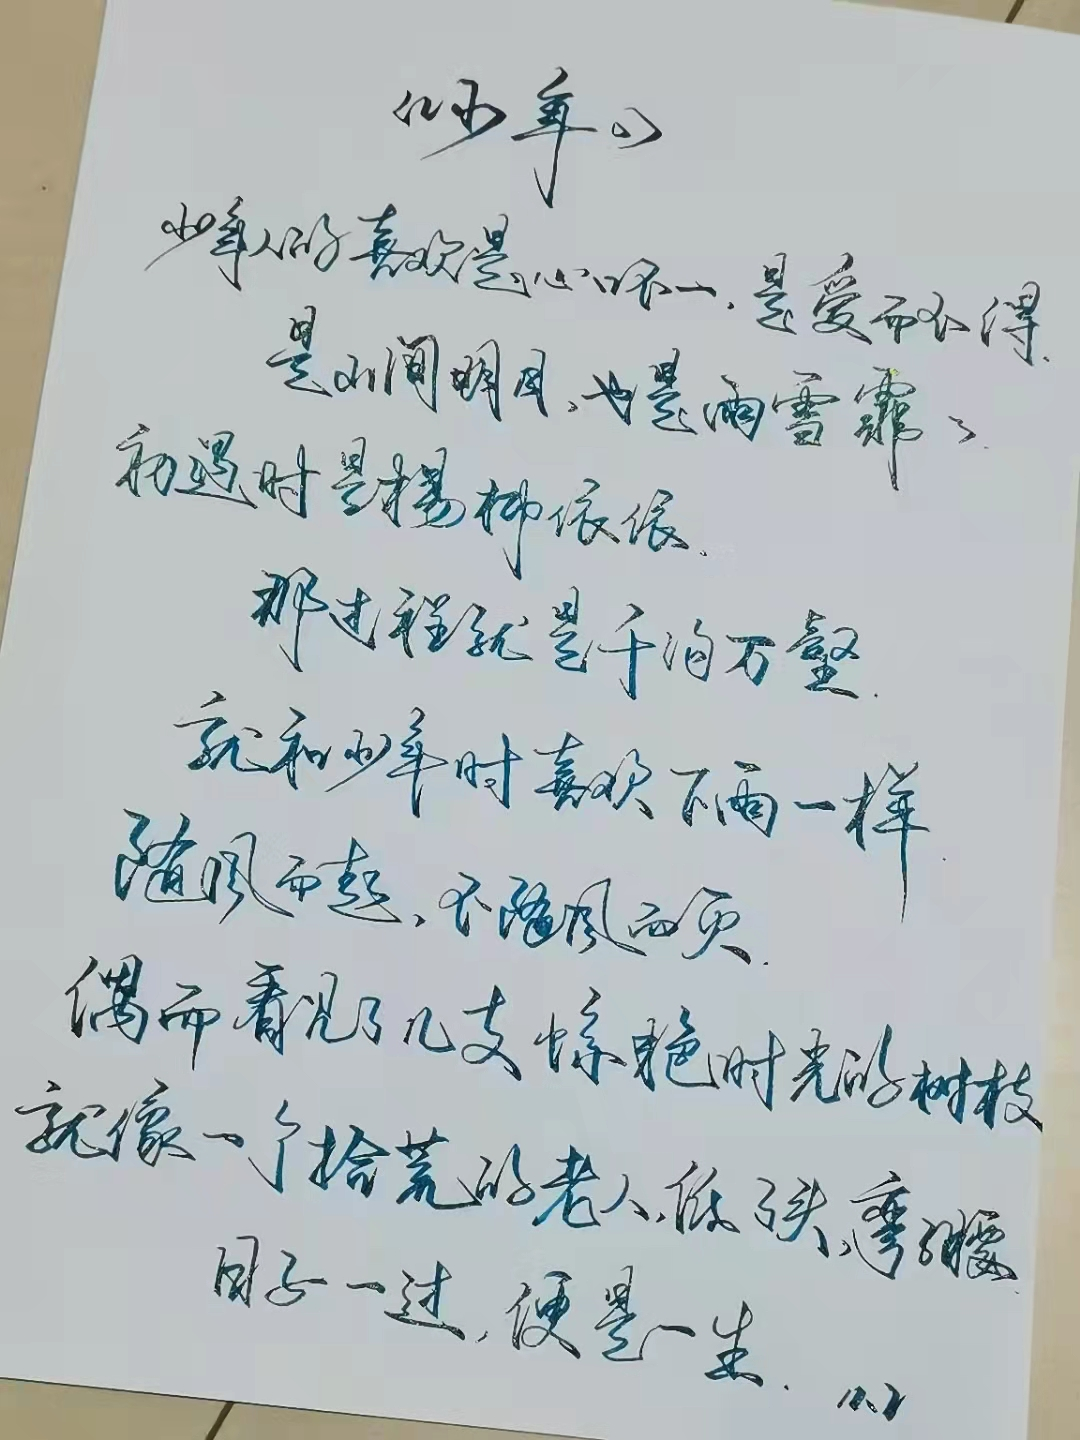 《少年》
少年人的喜欢是心口不一，是爱而不得.
是山间明月，也是雨雪霏霏.
初遇时是杨柳依依.
那过程就是千沟万壑.
就和少年时喜欢下雨一样.
随风而起，不随风而灭.
偶而看见了几支惊艳时光的树枝
就像一个拾荒的老人，低头，弯腰
日子一过，便是一生.